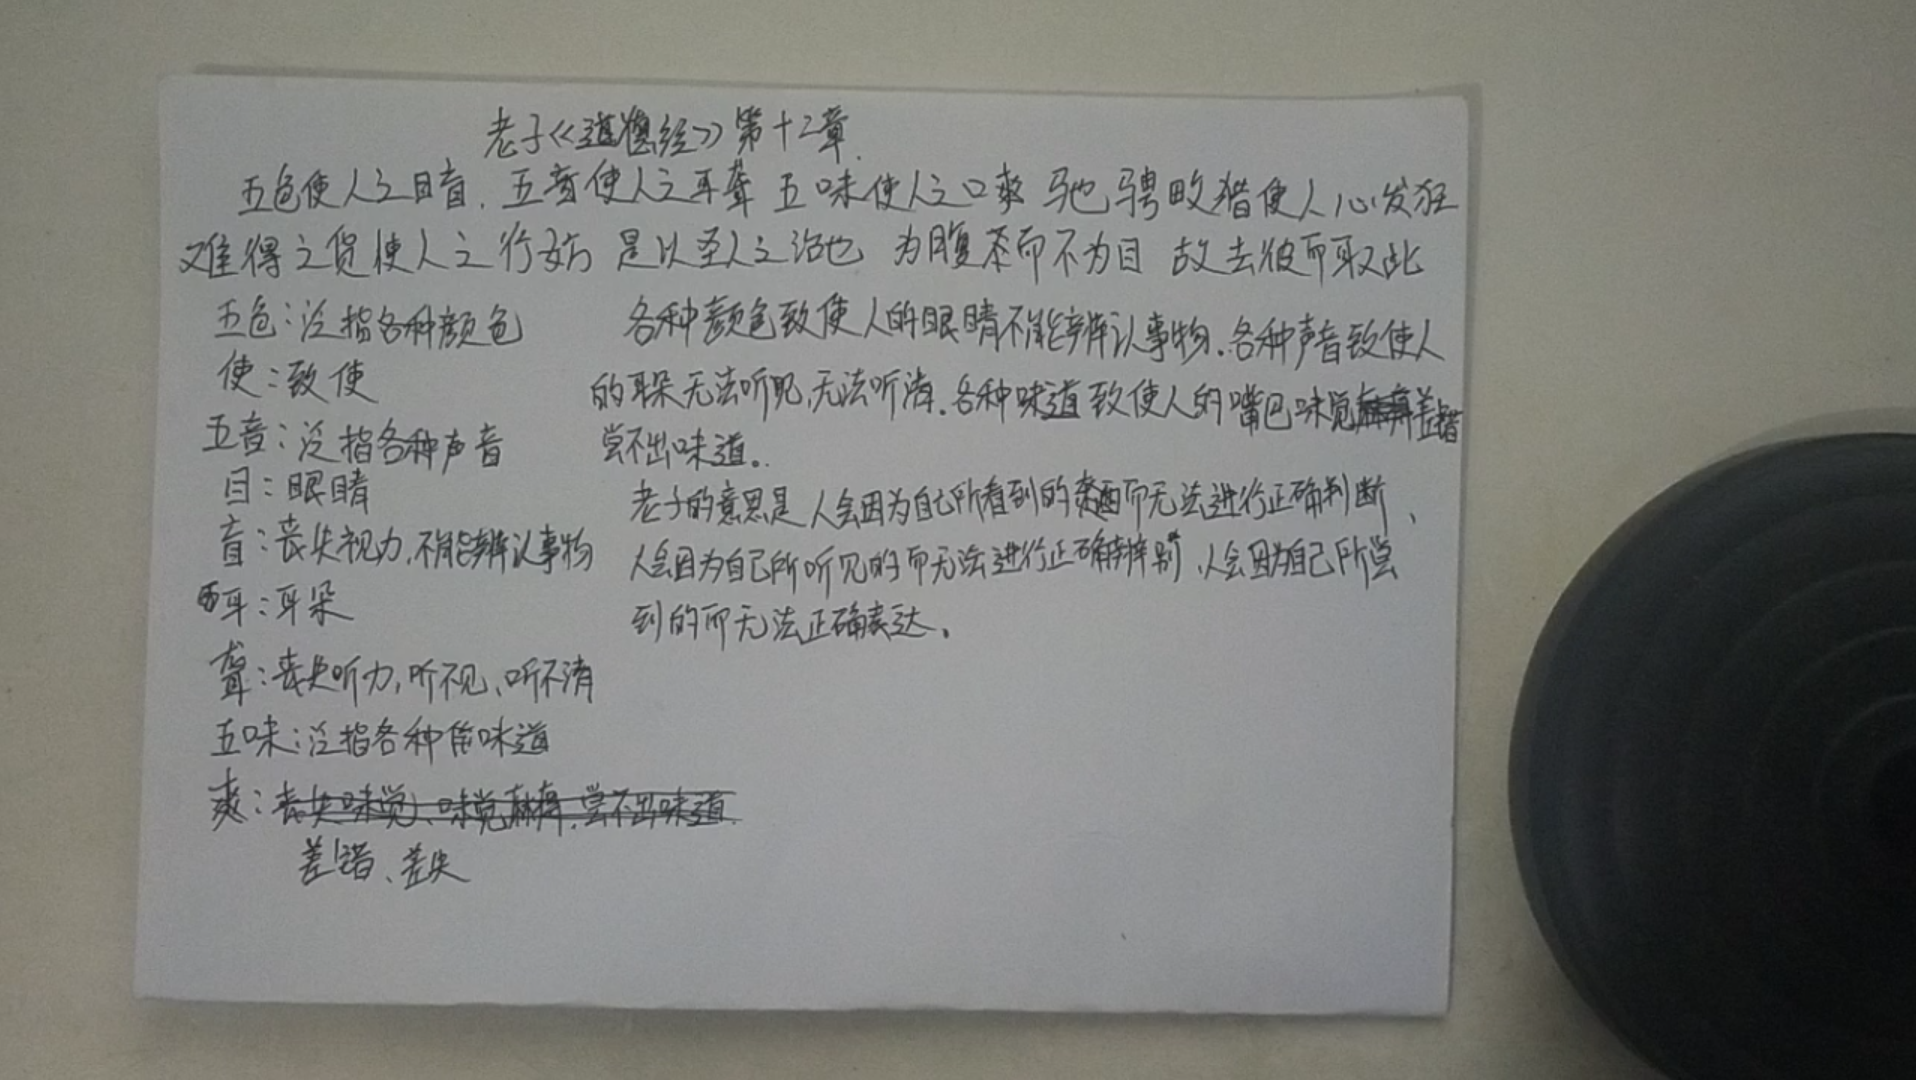 老子《道德经》第十二章
五色使人之目盲.五音使人之耳聋 五味使人之口爽 驰骋畋猎使人心发狂
难得之货使人之行妨 是以圣人之治也 为腹而不为目 故去彼而取此
五色：泛指各种颜色
使：致使
五音：泛指各种声音
目：眼睛
盲：丧失视力,不能辨认事物
耳：耳朵
聋：丧失听力,听不见、听不清
五味：泛指各种味道
爽：丧失味觉、味觉麻痹.尝不出味道.
差错、差失
各种颜色致使人的眼睛不能辨认事物.各种声音致使人
的耳朵无法听见,无法听清.各种味道致使人的嘴巴味觉差错
尝不出味道.
老子的意思是人会因为自己所看到的东西而无法进行正确判断,
人会因为自己所听见的而无法进行正确辨别,人会因为自己所尝
到的而无法正确表达.